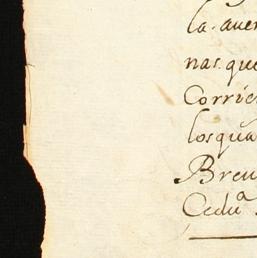 la aver
nas que
Corrie
los quã
Breu
Ceduª